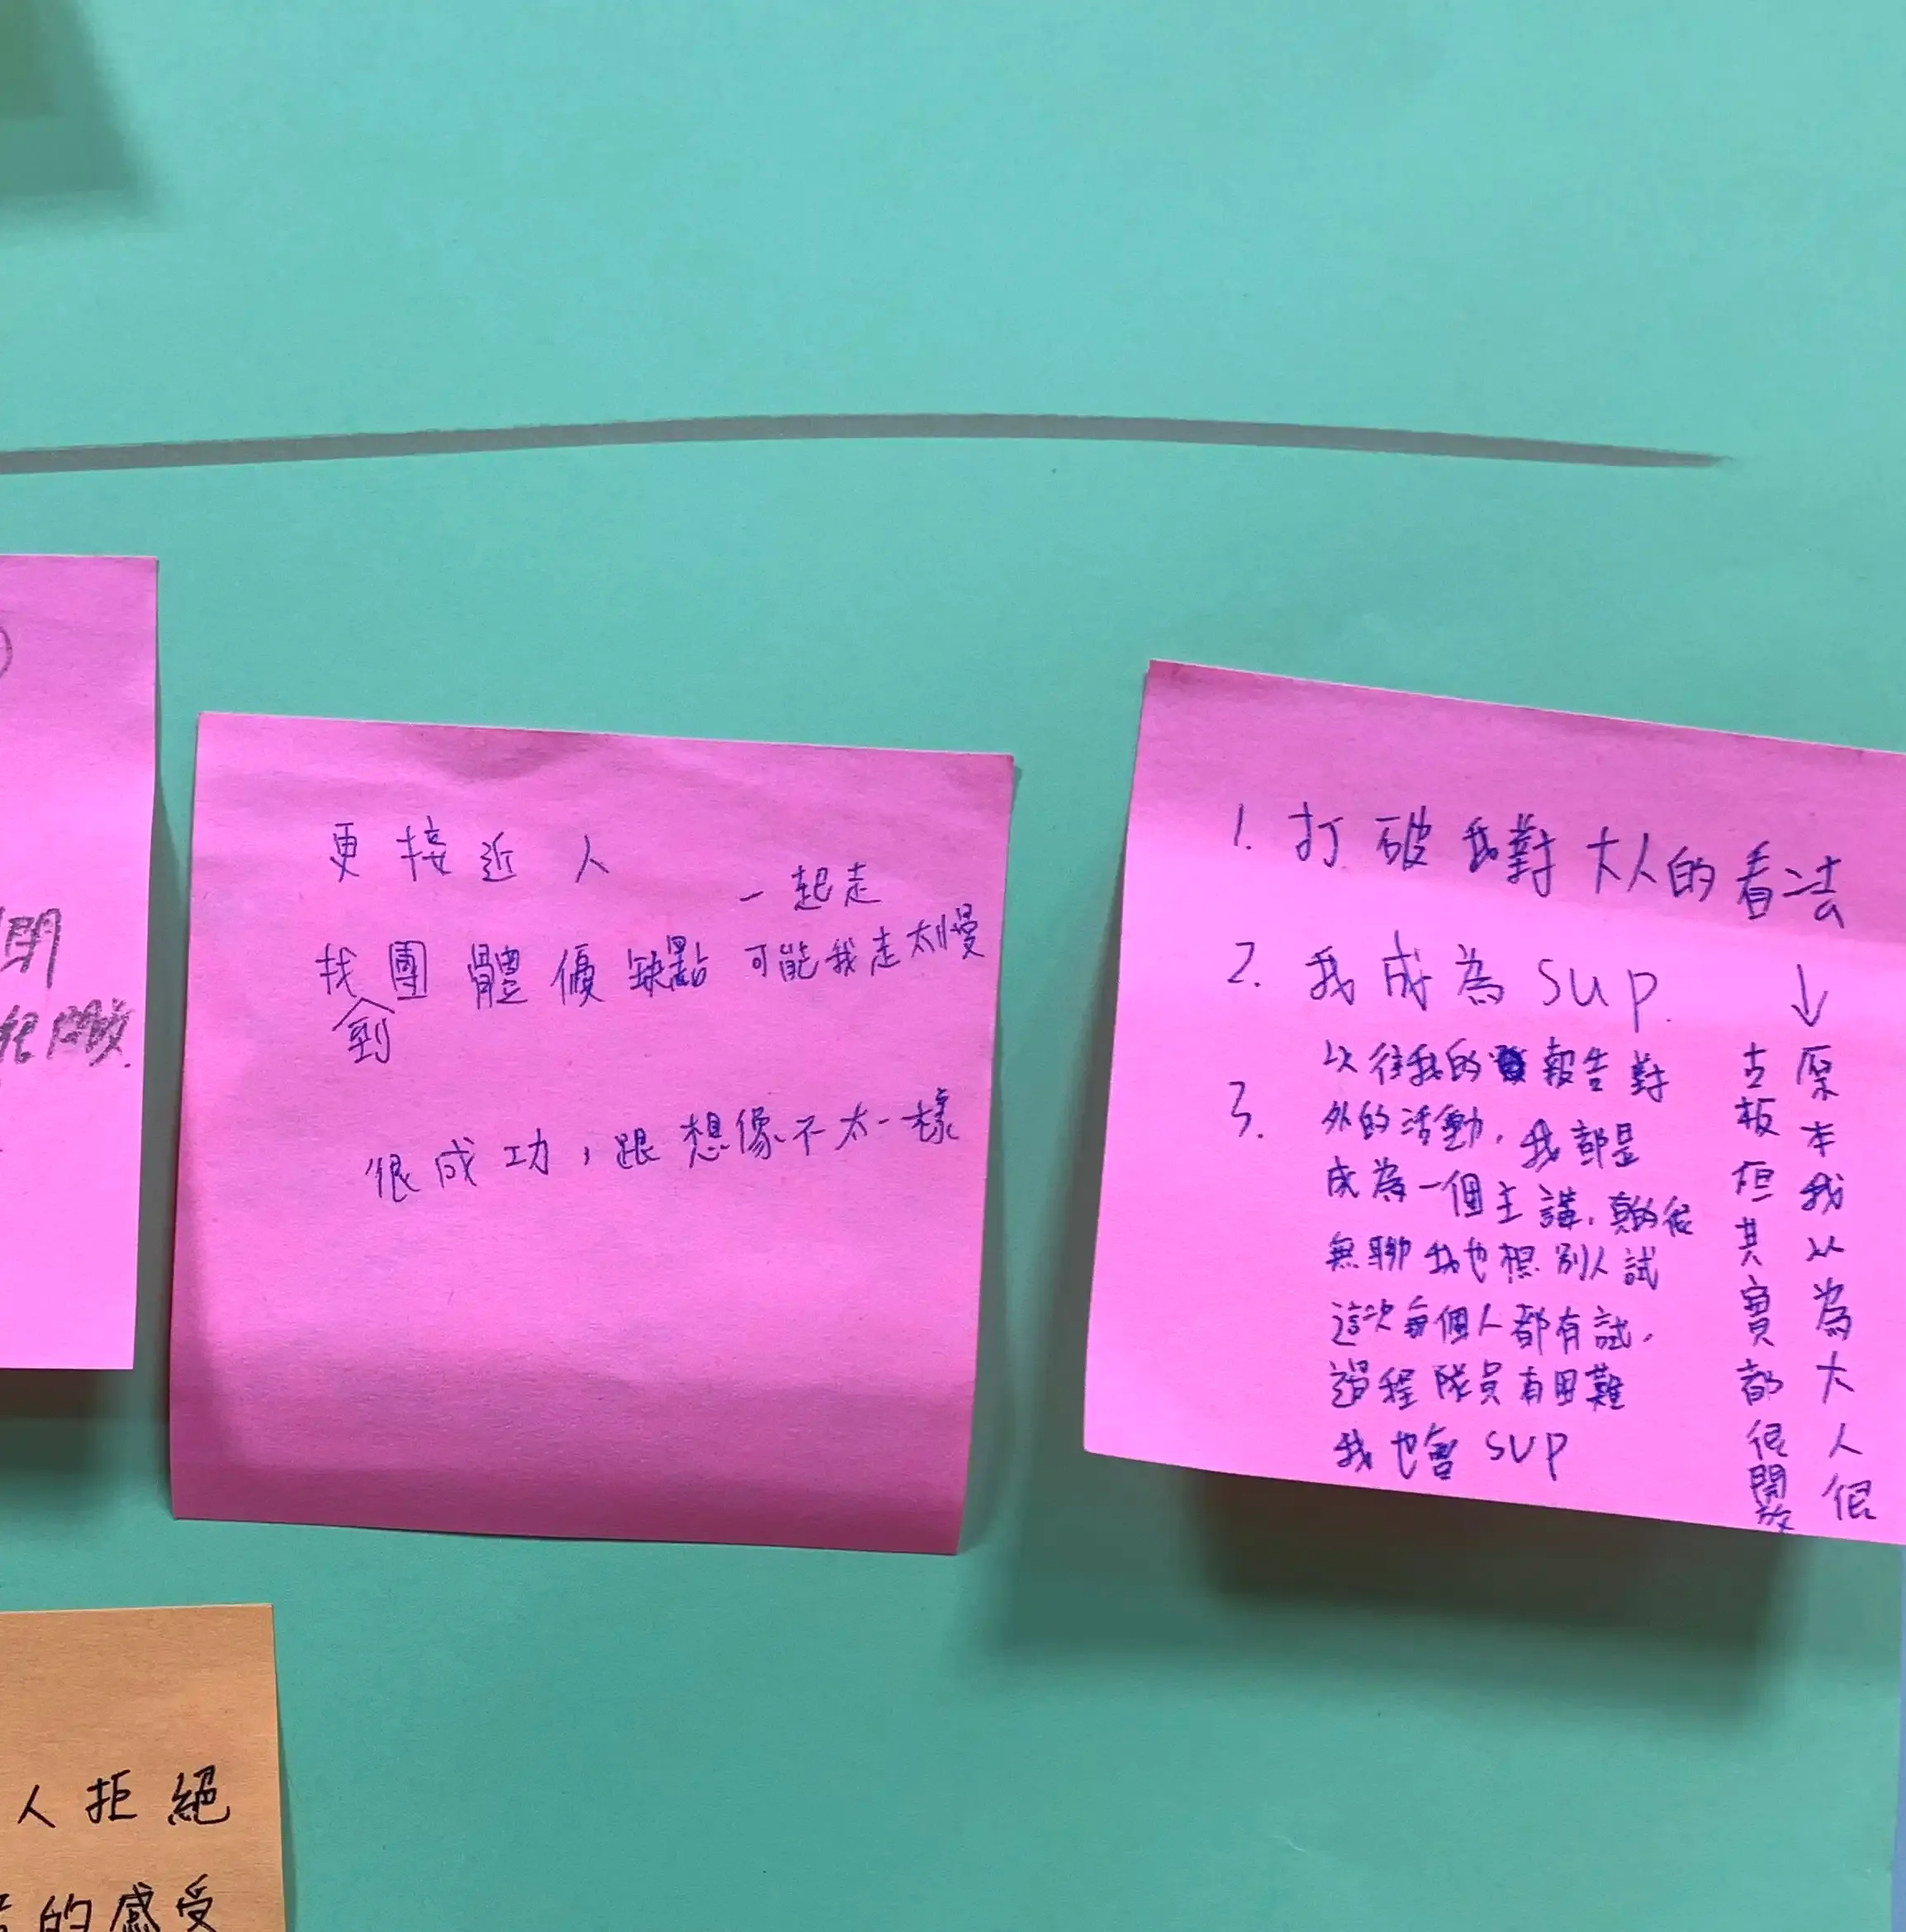 閉
很開放.
更接近人
一起走
找團體優缺點 可能我走太慢
到
很成功，跟想像不太一樣
1. 打破我對大人的看法
↓
原本我以為大人很
古板但其實都很開放
2. 我成為 sup.
3. 以往我的報告對
外的活動，我都是
成為一個主講，真的很
無聊我也想別人試
這次每個人都有試，
過程隊員有困難
我也會 sup
人拒絕
的感受